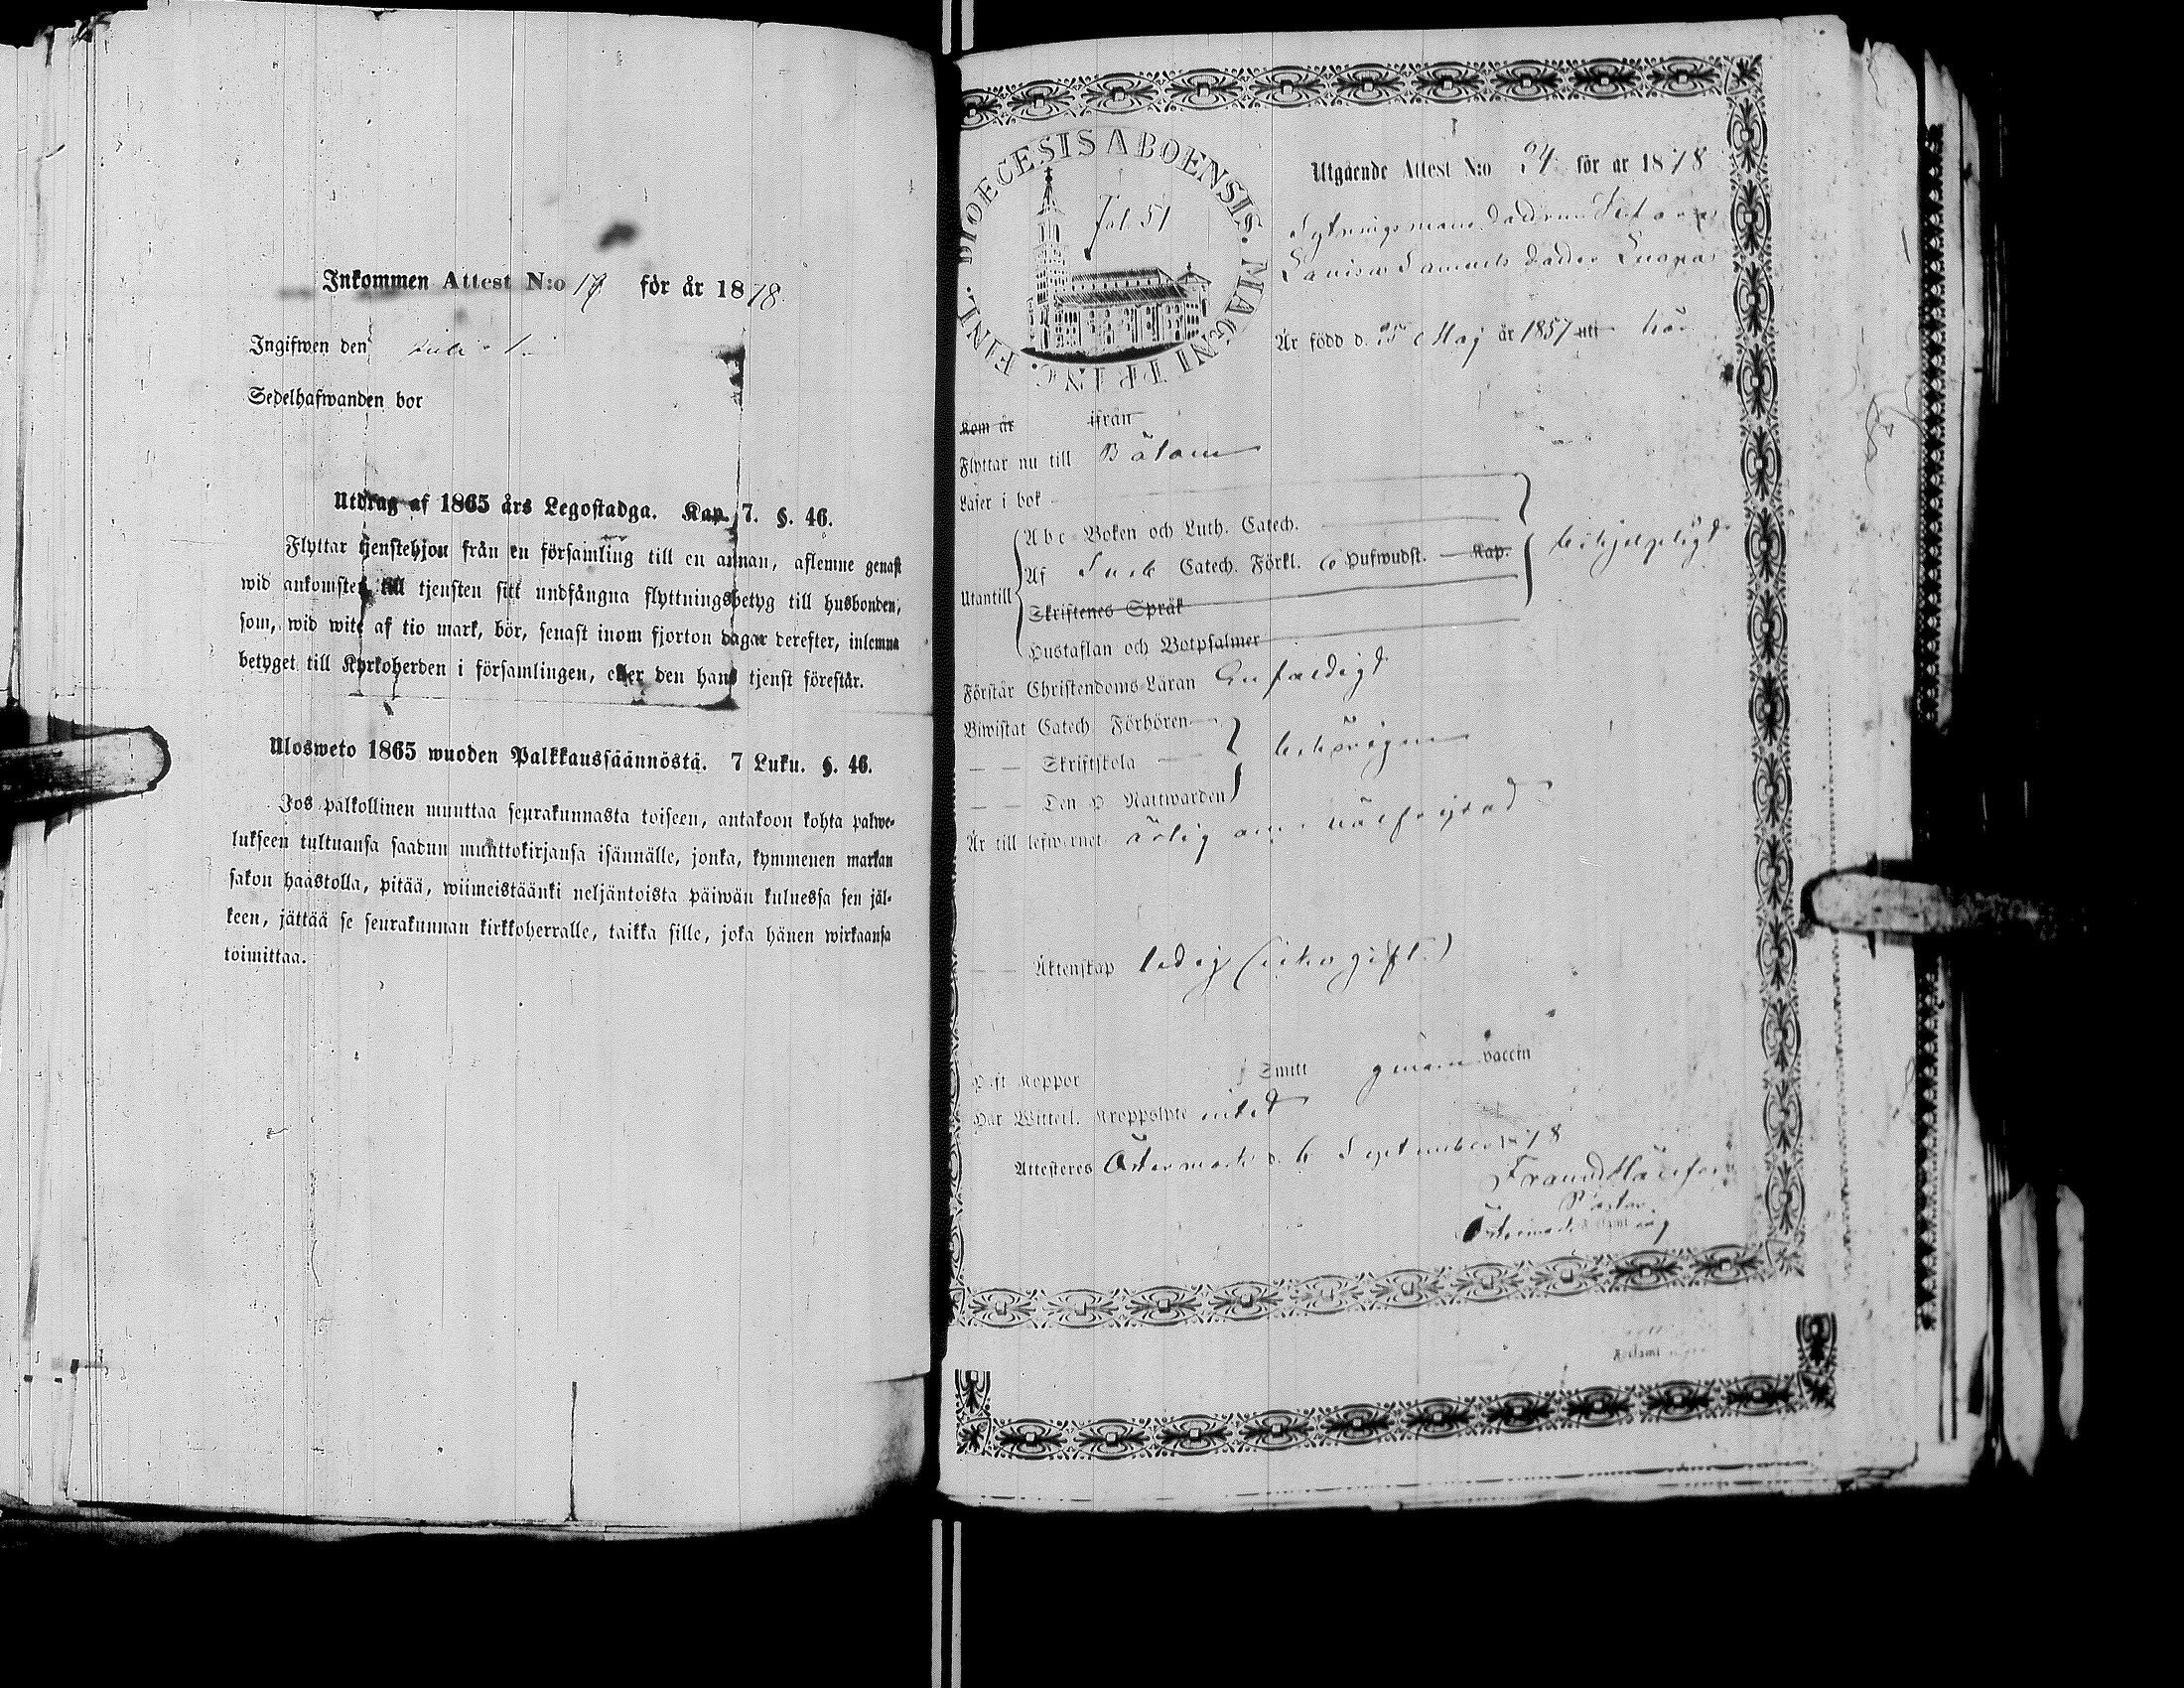 Inkommen Attest N:o 17 för år 1878.
Ingifwen den Juli 1.
Sedelhafwanden bor
Utdrag af 1865 års Legostadga. Kap. 7. §. 46.
Flyttar tjenstehjon från en församling till en annan, aflemne genast
wid ankomsten till tjensten sitt undfångna flyttningsbetyg till husbonden,
som, wid wite af tio mark, bör, senast inom fjorton dagar derefter, inlemna
betyget till Kyrkoherden i församlingen, eller den hans tjenst förestår.
Ulosweto 1865 wuoden Palkkaussäännöstä. 7 Luku. §. 46.
Jos palkollinen muuttaa seurakunnasta toiseen, antakoon kohta palwe-
lukseen tultuansa saadun muuttokirjansa isännälle, jonka, kymmenen markan
sakon haastolla, pitää, wiimeistäänki neljäntoista päiwän kuluessa sen jäl-
keen, jättää se seurakunnan kirkkoherralle, taikka sille, joka hänen wirkaansa
toimittaa.
FINL. DIOECESIS ABOENSIS. MAGNI PRINC.
Fol. 51
Utgående Attest N:o 34 för år 1878
Sytningsmans dottren
Lovisa Samuels dotter
Är född d. 25 Maj år 1857 uti här
Kom år ifrån
Flyttar nu till Bötom
Läser i bok
Utantill
Abc-Boken och Luth. Catech.
Af Sveb Catech. Förkl. 6 Hufwudst. Kap.
behjelpligt
Skriftenes Språk
Hustaflan och Botpsalmer
Förstår Christendoms-Läran Enfaldigt
Biwistat Catech. Förhören
— — Skriftskola
behörigen
— — Den H. Nattwarden
Är till lefwernet ärlig och välfrejdad
— — Äktenskap ledig (icke gift)
Haft Koppor Smitt genom vaccin
Har Witterl. Kroppslyte intet
Attesteres Östermark d. 6 September 1878
Pastor